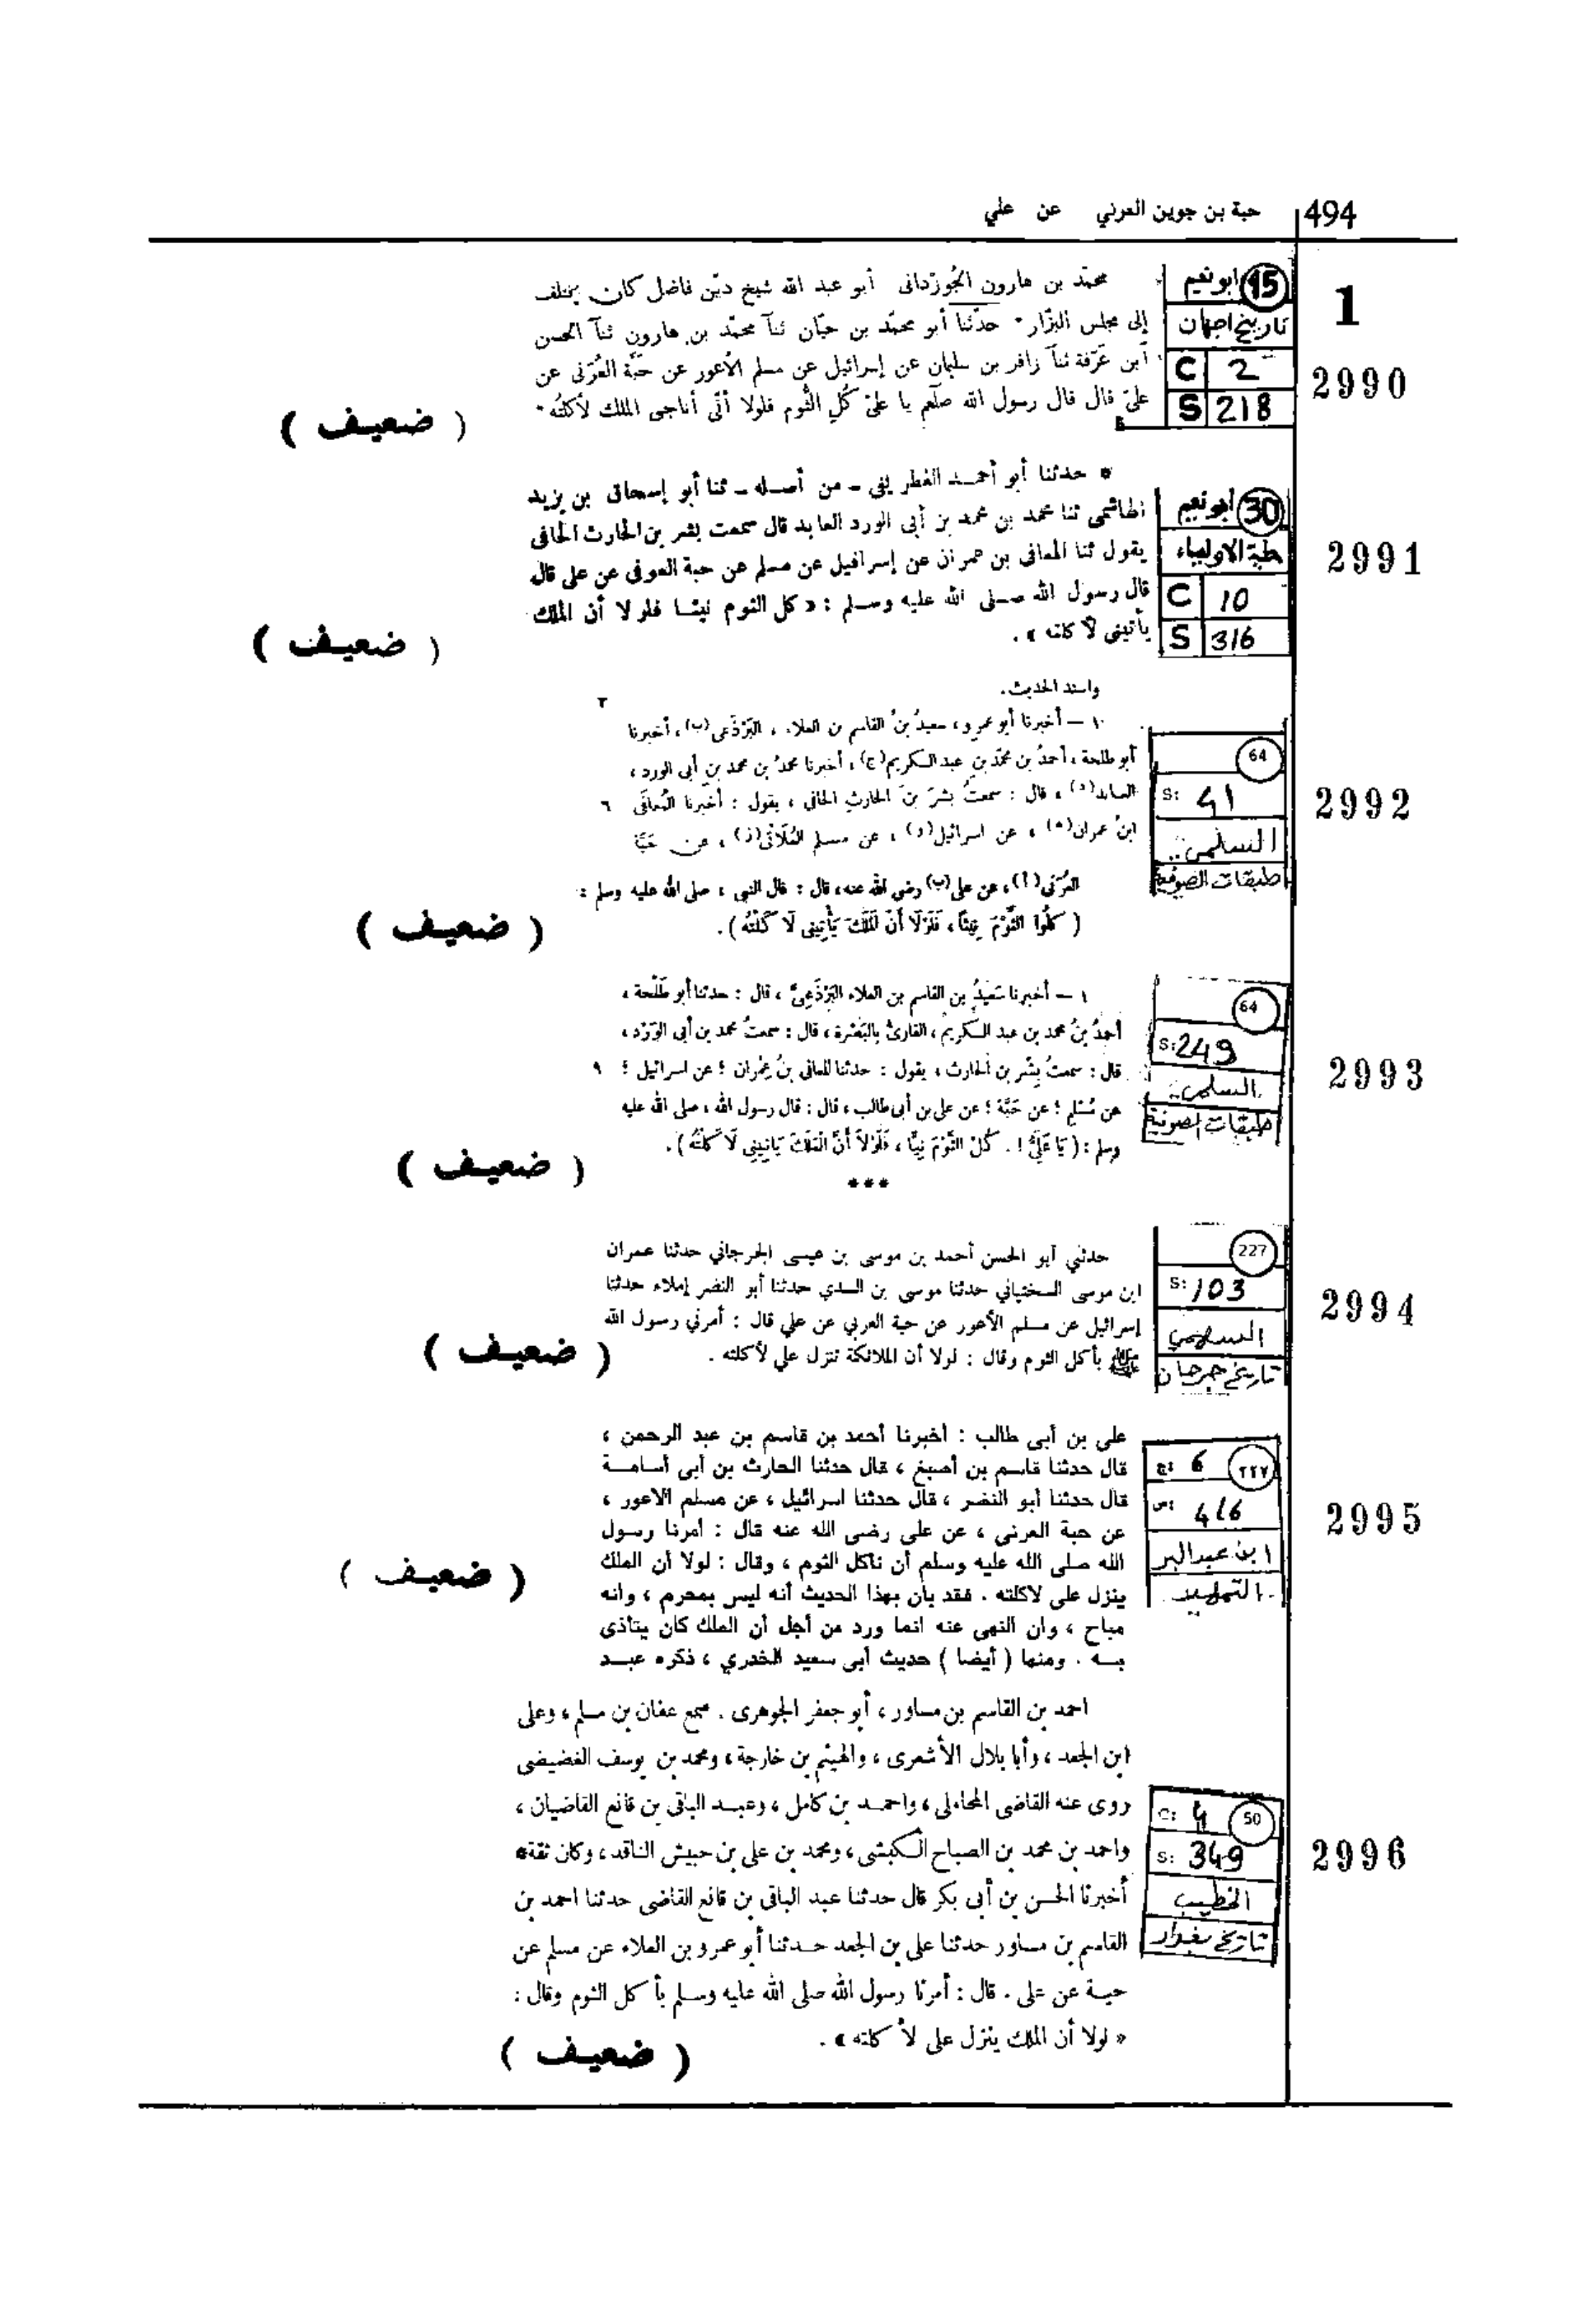 494 حبة بن جوين العرني عن علي
1
15 ابو نعيم
تاريخ اصبهان
C 2
S 218
2990
محمّد بن هارون الجُوزدانى أبو عبد الله شيخ ديّن فاضل كان يختلف
إلى مجلس البزّار * حدّثنا أبو محمّد بن حيّان ثنآ محمّد بن هارون ثنآ الحسن
ابن عَرَفة ثنآ زافر بن سليمان عن إسرائيل عن مسلم الأعور عن حبّة العُرَنى عن
علىّ قال قال رسول الله صلّعم يا علىّ كُلِ الثُّوم فلولا أنّى أناجى الملك لأكلتُه *
( ضعيف )
30 أبو نعيم
حلية الاولياء
C 10
S 316
2991
* حدثنا أبو أحمد الغطريفى ـ من أصله ـ ثنا أبو إسحاق بن يزيد
الهاشمى ثنا محمد بن محمد بن أبى الورد العابد قال سمعت بشر بن الحارث الحافى
يقول ثنا المعافى بن عمران عن إسرافيل عن مسلم عن حبة العوفى عن على قال
قال رسول الله صلى الله عليه وسلم : « كل الثوم نيئا فلولا أن الملك
يأتينى لأ كلته » .
( ضعيف )
واسند الحديث.
64
S: 41
السلمي
طبقات الصوفية
2992
١ — أخبرنا أبو عمرو ، سعيدُ بنُ القاسم بن العلاء ، البَرْذَعى(ب) ، أخبرنا ٣
أبو طلحة ، أحمدُ بن محمّد بن عبد الكريم(ج) ، أخبرنا محمدُ بن محمد بن أبى الورد ،
العابد(د) ، قال : سمعتُ بشرَ بنَ الحارثِ الحافى ، يقول : أخبرنا المُعافَى ٦
ابنُ عمران(ه) ، عن اسرائيل(و) ، عن مسلم المُلَائى(ز) ، عن حَبَّة
العُرَنى(أ) ، عن على(ب) رضي الله عنه ، قال : قال النبى ، صلى الله عليه وسلم :
( كُلُوا الثُّومَ نِيئًا ، فَلَوْلَا أَنَّ الْمَلَكَ يَأْتِينِى لَأَ كَلْتُهُ ) .
( ضعيف )
64
S: 249
السلمي
طبقات الصوفية
2993
١ — أخبرنا سَعيدُ بن القاسم بن العلاء البَرْذَعِىُّ ، قال : حدثنا أبو طَلْحة ،
أحمدُ بنُ محمد بن عبد الكريم ، القارئُ بالبَصْرة ، قال : سمعتُ محمد بن أبى الوَرْد ،
قال : سمعتُ بِشْر بن الحارث ، يقول : حدثنا المعافى بنُ عِمْران ؛ عن اسرائيل ؛ ٩
عن مُسْلِم ؛ عن حَبَّة ؛ عن على بن أبى طالب ، قال : قال رسول الله ، صلى الله عليه
وسلم : ( يَا عَلِىُّ ! . كُلْ الثُّوْمَ نِيًّا ، فَلَوْلَا أَنَّ الْمَلَكَ يَأتِينِى لَأَ كَلْتُهُ ) .
( ضعيف )
***
227
S: 103
السهمي
تاريخ جرجان
2994
حدثني أبو الحسن أحمد بن موسى بن عيسى الجرجاني حدثنا عمران
ابن موسى السختياني حدثنا موسى بن السدي حدثنا أبو النضر إملاء حدثنا
إسرائيل عن مسلم الأعور عن حبة العرني عن علي قال : أمرني رسول الله
ﷺ بأكل الثوم وقال : لولا أن الملائكة تنزل علي لأكلته .
( ضعيف )
٢٢٧ ج: 6
ص: 416
ابن عبد البر
التمهيد
2995
على بن أبى طالب : أخبرنا أحمد بن قاسم بن عبد الرحمن ،
قال حدثنا قاسم بن أصبغ ، قال حدثنا الحارث بن أبى أسامة
قال حدثنا أبو النضر ، قال حدثنا اسرائيل ، عن مسلم الاعور ،
عن حبة العرنى ، عن على رضى الله عنه قال : أمرنا رسول
الله صلى الله عليه وسلم أن نأكل الثوم ، وقال : لولا أن الملك
ينزل على لاكلته . فقد بان بهذا الحديث أنه ليس بمحرم ، وانه
مباح ، وان النهى عنه انما ورد من أجل أن الملك كان يتأذى
بـه . ومنها ( أيضا ) حديث أبى سعيد الخدري ، ذكره عبد
( ضعيف )
50
C: 4
S: 349
الخطيب
تاريخ بغداد
2996
احمد بن القاسم بن مساور ، أبو جعفر الجوهرى . سمع عفان بن مسلم ، وعلى
ابن الجعد ، وأبا بلال الأشعرى ، والهيثم بن خارجة ، ومحمد بن يوسف الغضيضى
روى عنه القاضى المحاملى ، واحمد بن كامل ، وعبد الباقى بن قانع القاضيان ،
واحمد بن محمد بن الصباح الكبشى ، ومحمد بن على بن حبيش الناقد ، وكان ثقة *
أخبرنا الحسن بن أبى بكر قال حدثنا عبد الباقى بن قانع القاضى حدثنا احمد بن
القاسم بن مساور حدثنا على بن الجعد حدثنا أبو عمرو بن العلاء عن مسلم عن
حبة عن على . قال : أمرنا رسول الله صلى الله عليه وسلم بأ كل الثوم وقال :
« لولا أن الملك ينزل على لأ كلته » .
( ضعيف )